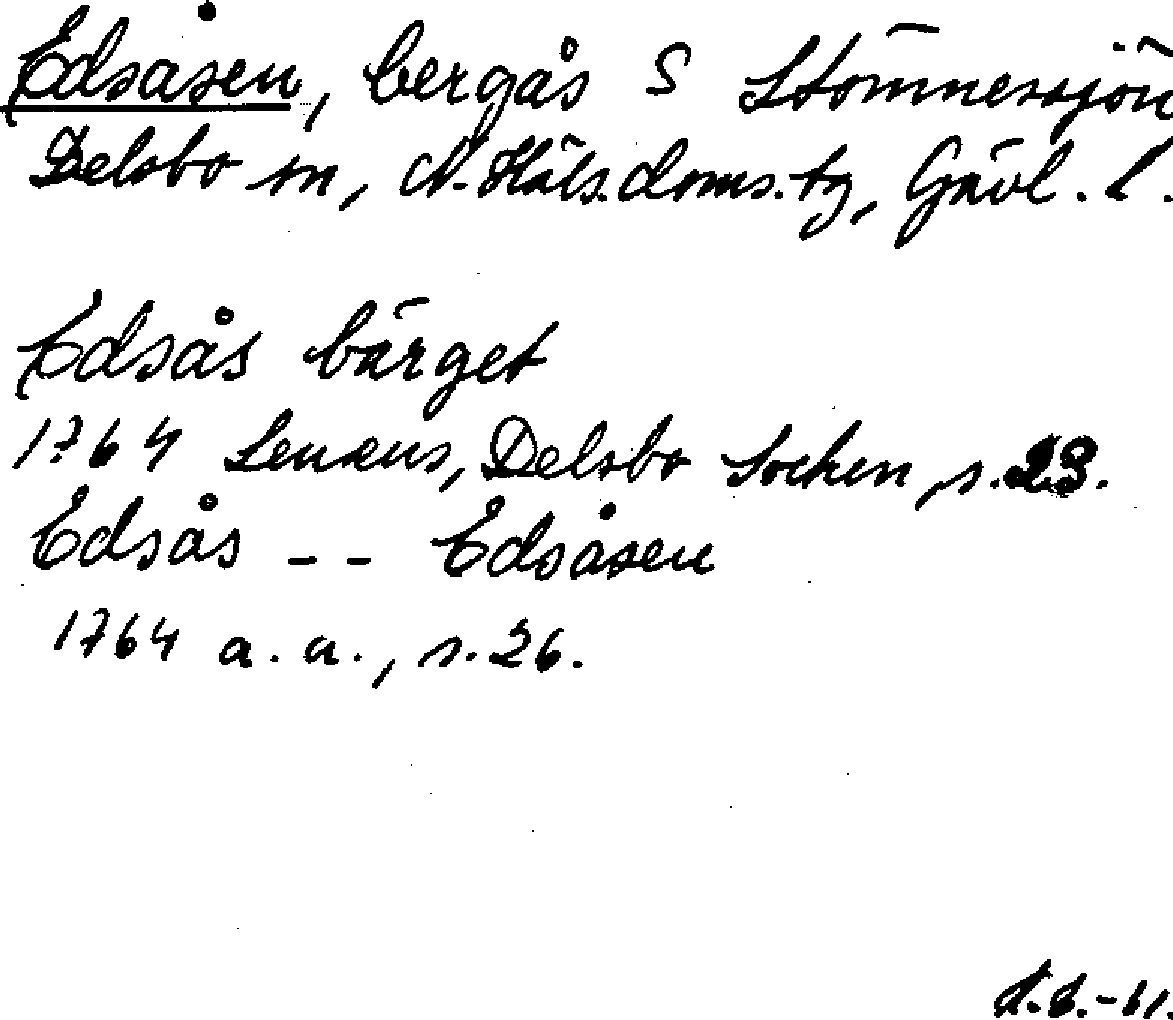 Edsåsen, bergås S Stömnessjön
Delsbo sn, N. Häls. doms. tg, Gävl. l.
Edsås bärget
1764 Lenæus, Delsbo Sochen, s. 23.
Edsås -- Edsåsen
1764 a. a., s. 26.